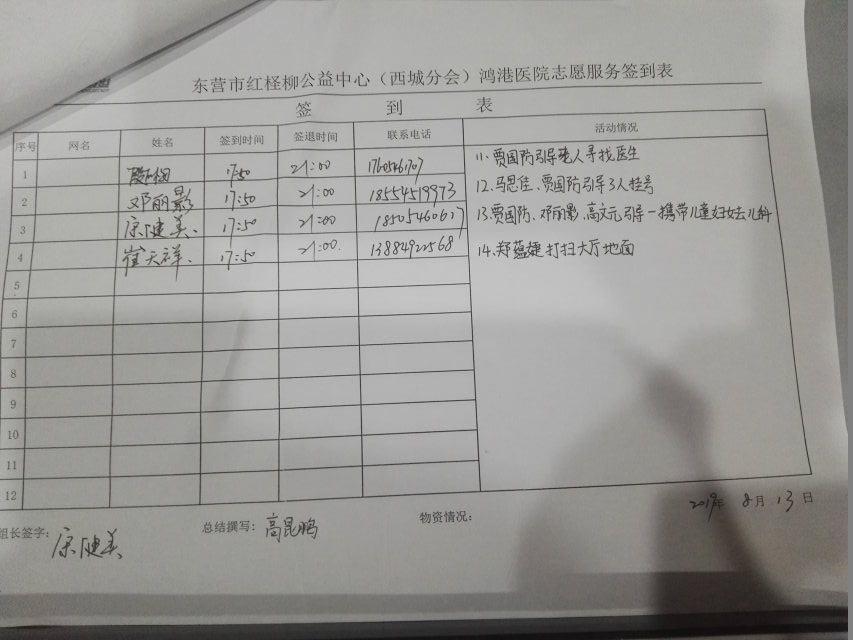 东营市红柽柳公益中心（西城分会）鸿港医院志愿服务签到表
签 到 表
序号 网名 姓名 签到时间 签退时间 联系电话 活动情况
1 17:50 21:00
2 邓丽影 17:50 21:00 18554519973
3 康健美、 17:50 21:00 18505460617
4 崔天祥、 17:50 21:00. 13884922568
5
6
7
8
9
10
11
12
11、贾国防引导老人寻找医生
12、马思佳、贾国防引导3人挂号
13、贾国防、邓丽影、高文元引导一携带儿童妇女去儿科
14、郑蕴婕打扫大厅地面
组长签字： 康健美
总结撰写： 高昆鹏
物资情况：
2019年 8月 13日